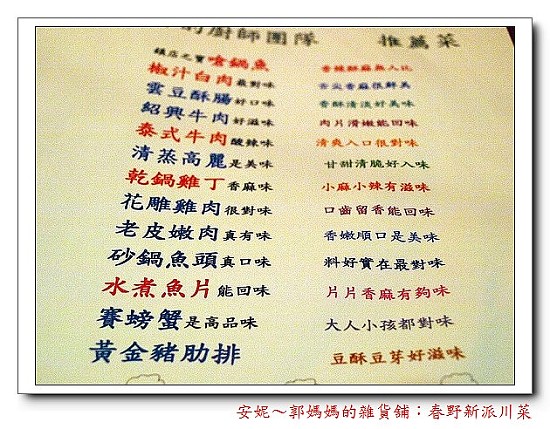 的廚師團隊 推薦菜
鎮店之寶嗆鍋魚 香辣酥麻無人比
椒汁白肉最對味 舌尖香麻很鮮美
雲豆酥腸好口味 香酥清淡好美味
紹興牛肉好滋味 肉片滑嫩能回味
泰式牛肉酸辣味 清爽入口很對味
清蒸高麗是美味 甘甜清脆好入味
乾鍋雞丁香麻味 小麻小辣有滋味
花雕雞肉很對味 口齒留香能回味
老皮嫩肉真有味 香嫩順口是美味
砂鍋魚頭真口味 料好實在最對味
水煮魚片能回味 片片香麻有夠味
賽螃蟹是高品味 大人小孩都對味
黃金豬肋排 豆酥豆芽好滋味
安妮～郭媽媽的雜貨舖：春野新派川菜